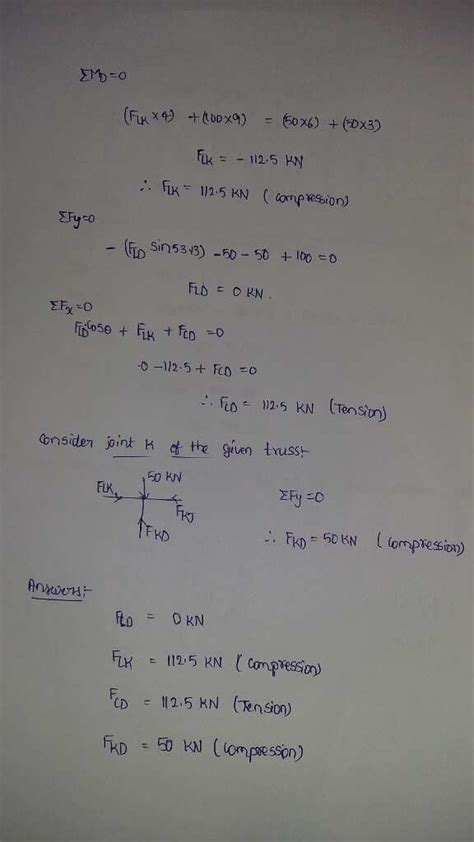 ΣM_D=0
(F_LK×4) + (100×9) = (50×6) + (50×3)
F_LK = - 112.5 KN
∴ F_LK = 112.5 KN ( compression)
ΣFy=0
- (F_LD sin 53.13) - 50 - 50 + 100 = 0
F_LD = 0 KN.
ΣFx=0
F_LD cosθ + F_LK + F_CD = 0
0 - 112.5 + F_CD = 0
∴ F_CD = 112.5 KN (Tension)
Consider joint K of the given truss:-
50 KN
F_LK
F_KJ
F_KD
ΣFy=0
∴ F_KD = 50 KN ( compression)
Answers:-
F_LD = 0 KN
F_LK = 112.5 KN ( compression)
F_CD = 112.5 KN (Tension)
F_KD = 50 KN (compression)